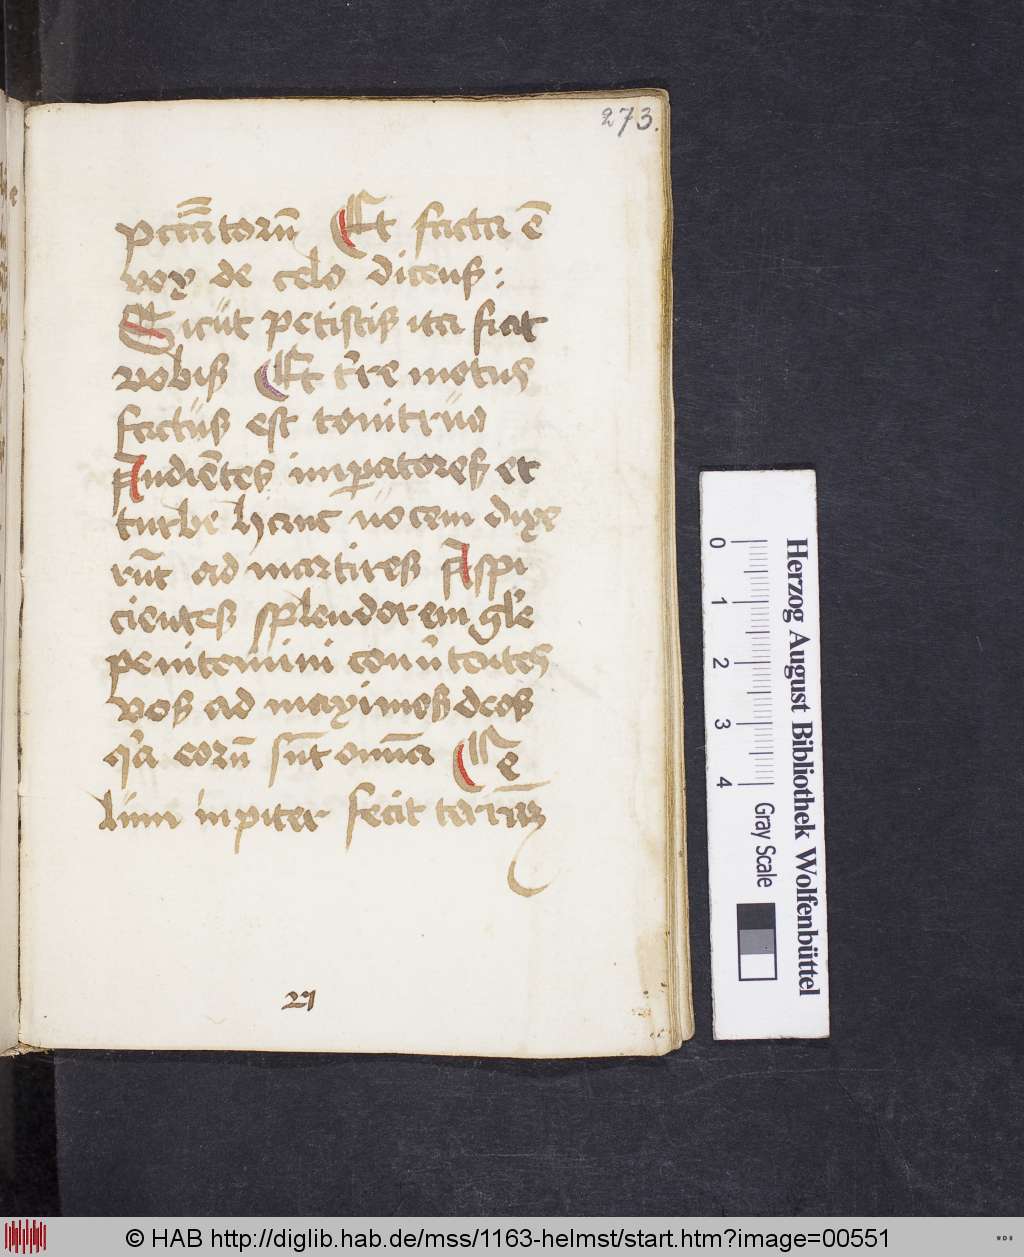 273.
pccātorū Et facta ē
vox de celo dicens :
Sicut petistis ita fiat
vobis Et t're motus
factus est tonitruo
Audiētes imꝑatores et
turbe hanc uocem dixe
rūt ad martires Aspi
cientes splendorem gl'e
penitemini conu'tentes
vos ad maximos deos
q'a eorū sūt omīa Ce
lum iupiter fecit terrā
21
0 1 2 3 4
Gray Scale
Herzog August Bibliothek Wolfenbüttel
© HAB http://diglib.hab.de/mss/1163-helmst/start.htm?image=00551